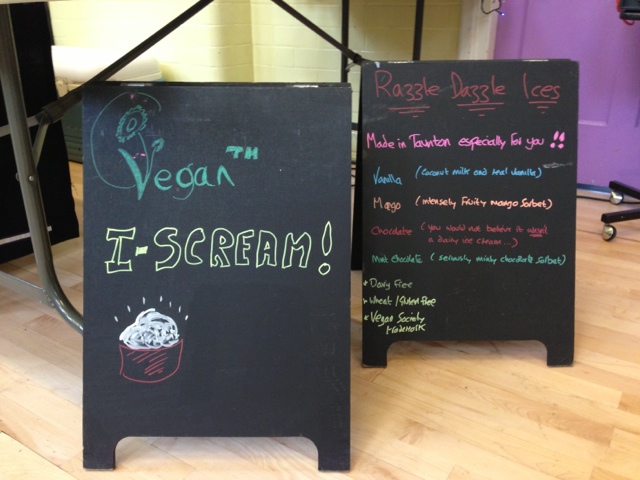 Vegan TM
I-SCREAM!
Razzle Dazzle Ices
Made in Taunton especially for you !!
Vanilla (coconut milk and real vanilla)
Mango (intensely fruity mango sorbet)
Chocolate (you would not believe it wasnt
a dairy ice cream...)
Mint Chocolate (seriously minty chocolate sorbet)
* Dairy Free
* Wheat/Gluten Free
* Vegan Society
trademark